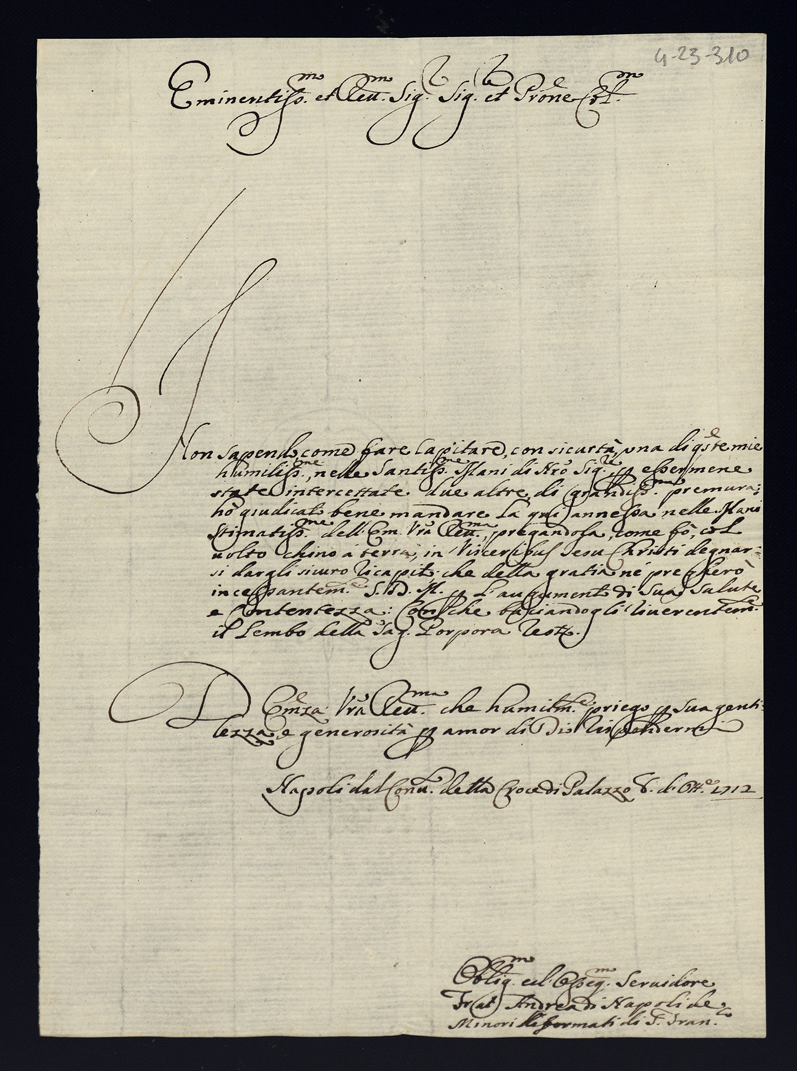 4-23-310
Eminentiss.mo et Reu.mo Sig.r Sig.r et Prone Col.mo
Non sapendo, come fare capitare, con sicurtà, una di q.ste mie
humiliss.me, nelle Santiss.me Mani di Nro Sig.re, p essermene
state intercettate due altre, di grandiss.ma premura;
hò giudicato bene mandare la qui annessa nelle Mani
Stimatiss.me dell'Em. Vra Reu.ma, pregandola, come fò, col
volto chino a terra, in Visceribus Iesu Christi degnar=
si dargli sicuro ricapito: che della gratia né pregherò
incessantem.te S. D. M. p l'augumento di Sua Salute
e Contentezza: Con che baciandogli riuerentem.te
il Lembo della Sag. Porpora resto.
D. Em.za Vra Reu.ma che humilm.te priego p sua genti=
lezza, e generosità p amor di Dio
Napoli dal Conu.to della Croce di Palazzo 8. d. Ott.e 1712
Oblig.mo ed Osseq.mo Seruidore
Frat' Andrea di Napoli de
Minori Reformati di S. Fran.